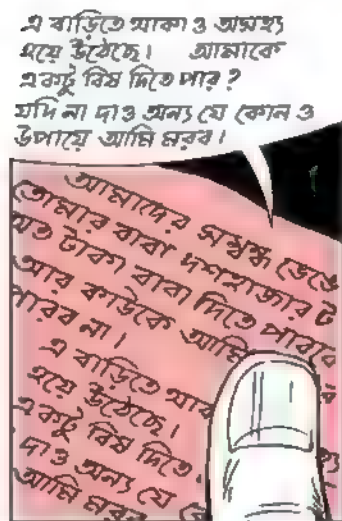 এ বাড়িতে থাকা ও অসহ্য
হয়ে উঠেছে। আমাকে
একটু বিষ দিতে পার?
যদি না দাও অন্য যে কোন ও
উপায়ে আমি মরব।
আমাদের সম্বন্ধ ভেঙে
তোমার বাবা দশহাজার ট
অত টাকা বাবা দিতে পারবে
আর কাউকে আমি
পারব না।
এ বাড়িতে থাকা
হয়ে উঠেছে।
একটু বিষ দিতে
দাও অন্য যে
আমি মরব